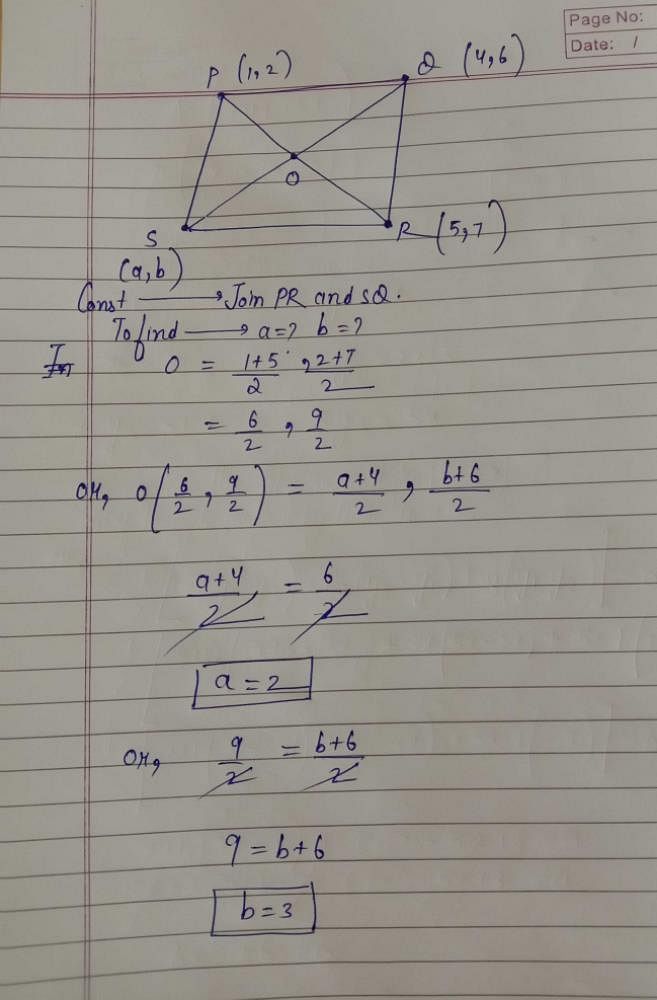 Page No:
Date: /
P (1,2) Q (4,6)
O
S R (5,7)
(a,b)
Const ⟶ Join PR and SQ.
To find ⟶ a=? b=?
O = 1+5/2 , 2+7/2
= 6/2 , 9/2
or, O(6/2 , 9/2) = a+4/2 , b+6/2
a+4/2 = 6/2
a = 2
or, 9/2 = b+6/2
9 = b+6
b = 3